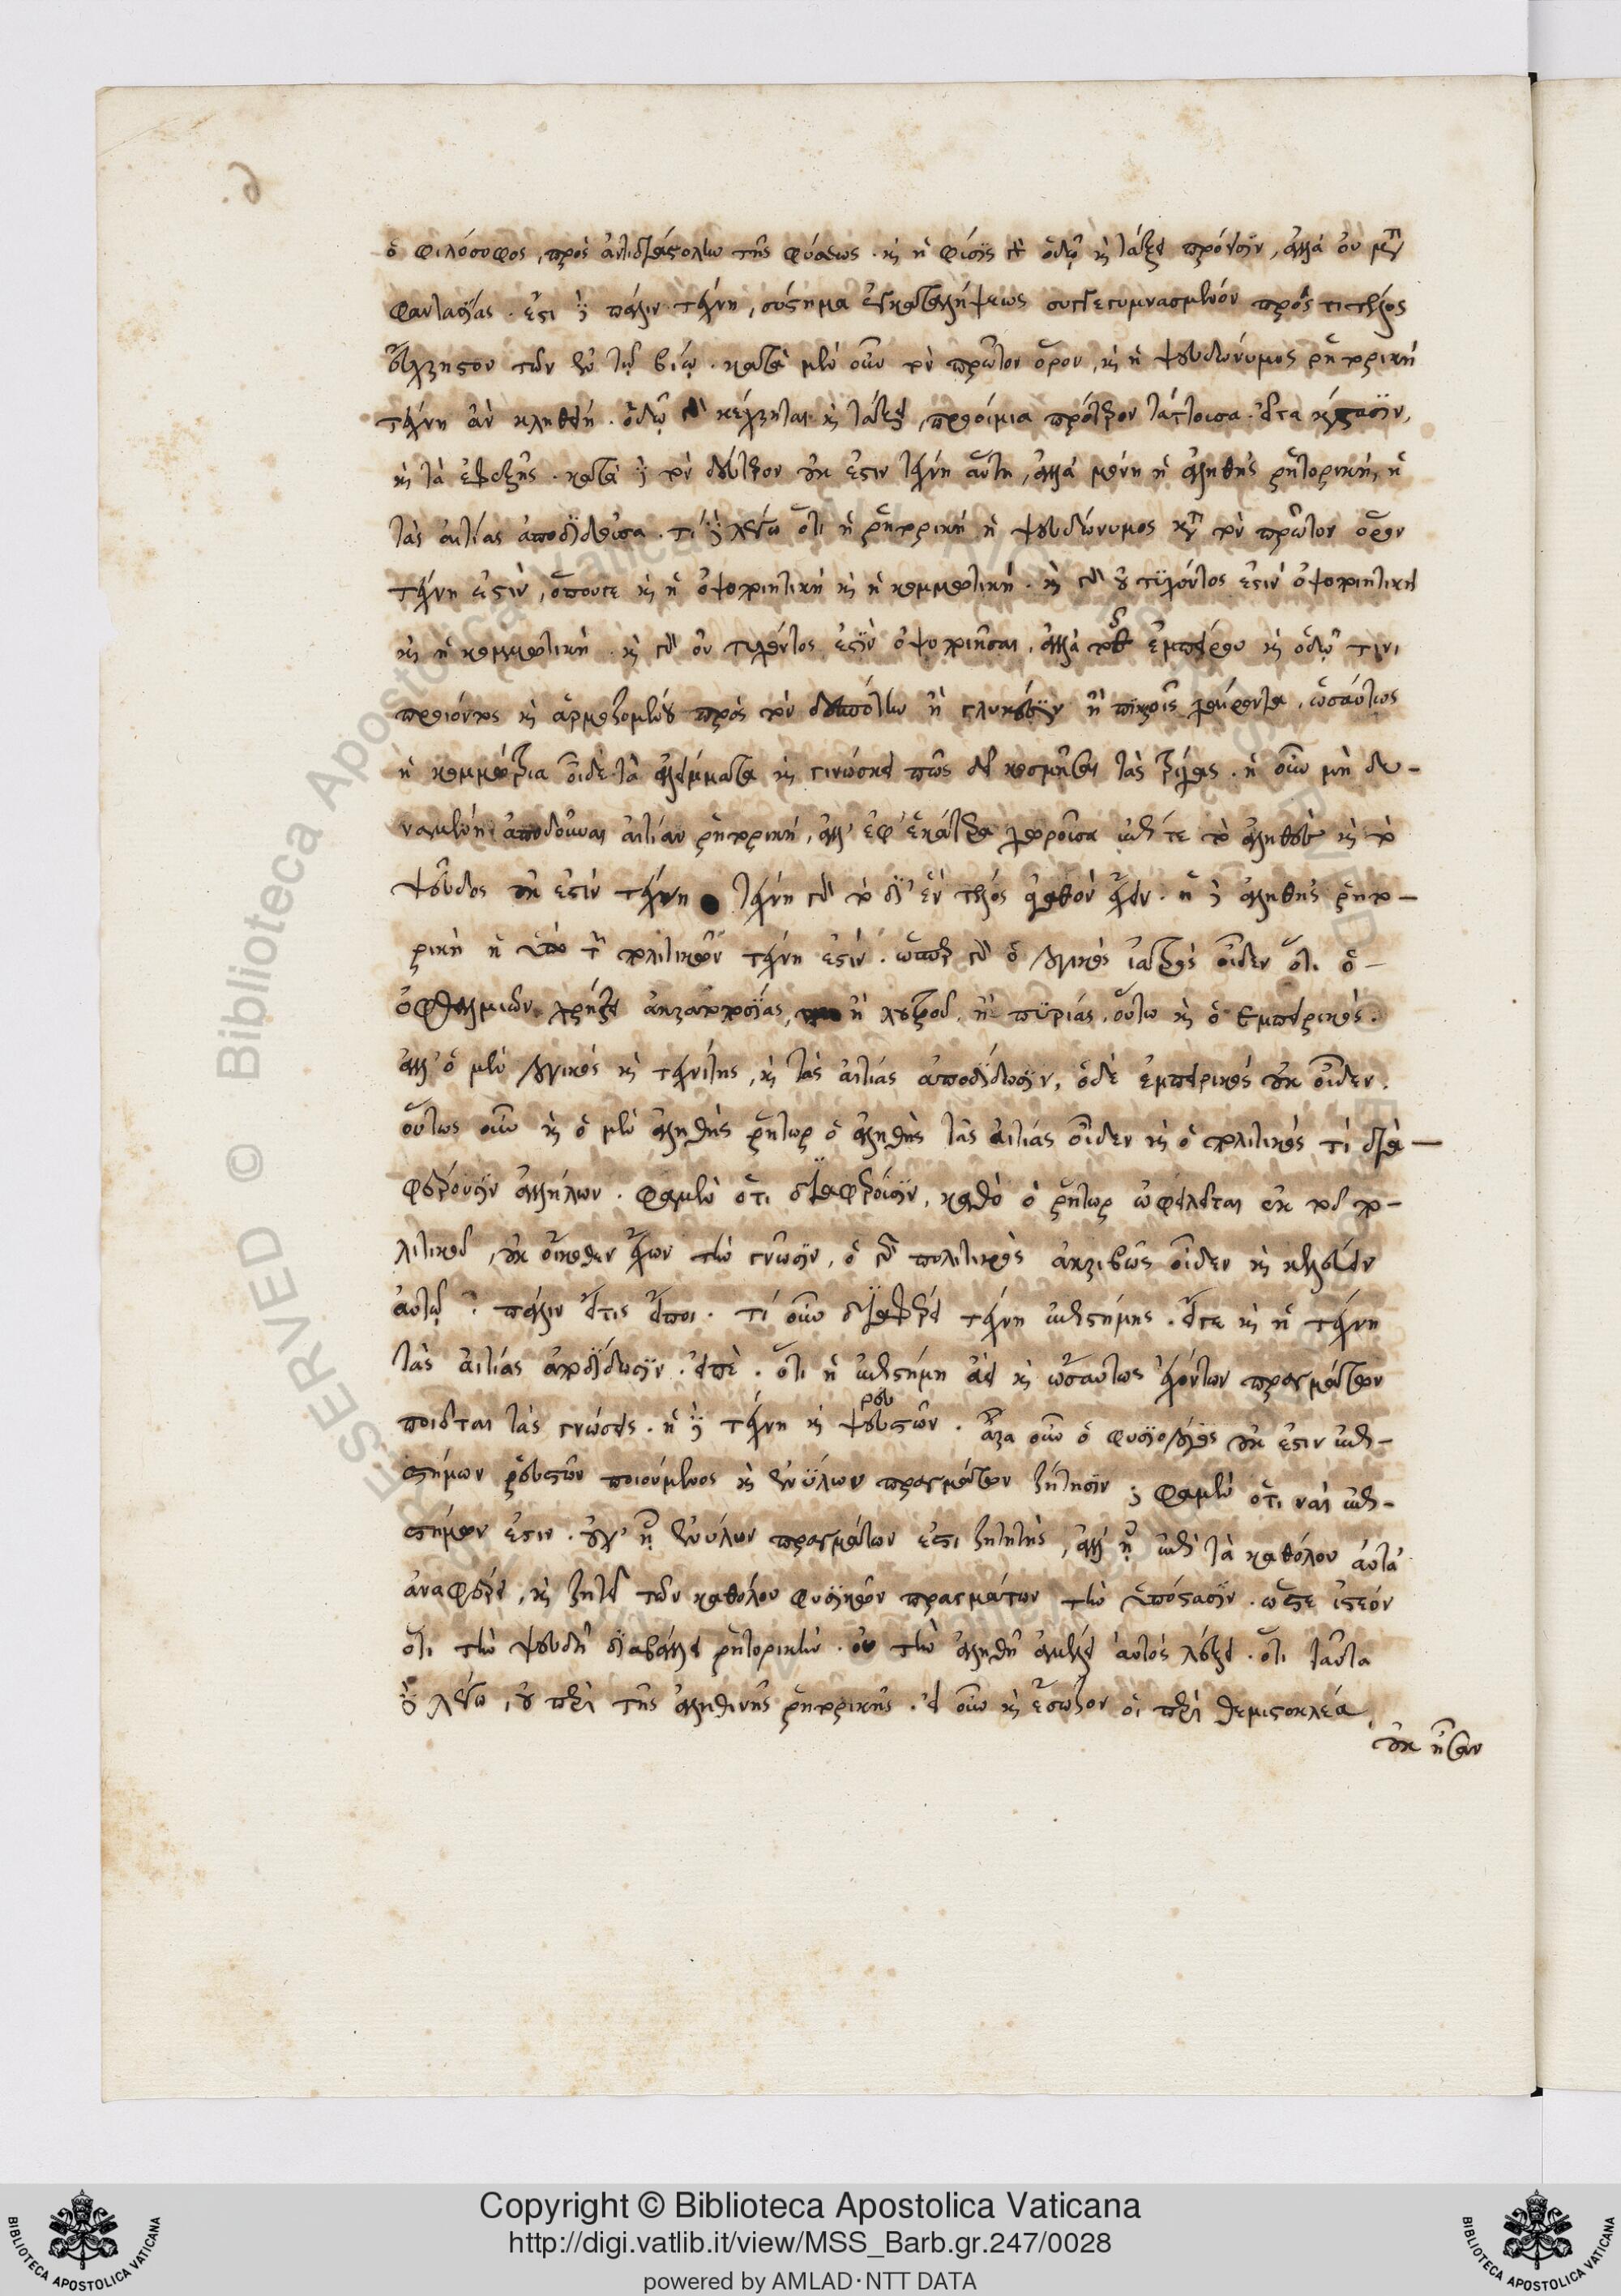 ὁ φιλόσοφος, πρὸς ἀντιδιαστολὴν τῆς φύσεως. καὶ ἡ φύσις γὰρ ὁδῷ καὶ τάξει πρόεισιν, ἀλλὰ οὐ μετὰ
φαντασίας. ἔστι δὲ πάλιν τέχνη, σύστημα ἐγκαταλήψεως συγγεγυμνασμένον πρός τι τέλος
εὔχρηστον τῶν ἐν τῷ βίῳ. κατὰ μὲν οὖν τὸν πρῶτον ὅρον, καὶ ἡ ψευδώνυμος ῥητορικὴ
τέχνη ἂν κληθείη. ὁδῷ γὰρ κέχρηται καὶ τάξει, προοίμια πρότερον τάττουσα. εἶτα κατάστασιν,
καὶ τὰ ἐφεξῆς. κατὰ δὲ τὸν δεύτερον οὐκ ἔστιν τέχνη αὕτη, ἀλλὰ μόνη ἡ ἀληθὴς ῥητορική, ἡ
τὰς αἰτίας ἀποδιδοῦσα. τί δὲ λέγω ὅτι ἡ ῥητορικὴ ἡ ψευδώνυμος κατὰ τὸν πρῶτον ὅρον
τέχνη ἐστίν, ὅπουγε καὶ ἡ ὀψοποιητικὴ καὶ ἡ κομμωτική. καὶ γὰρ οὐ τυχόντος ἐστὶν ὀψοποιητικὴ
καὶ ἡ κομμωτική. καὶ γὰρ οὐ τυχόντος ἐστὶν ὀψοποιῆσαι, ἀλλὰ τοῦ ἐμπείρου καὶ ὁδῷ τινι
προϊόντος καὶ ἁρμοζομένου πρὸς τὸν δεσπότην ἢ γλυκέσιν ἢ πικροῖς χαίροντα, ὡσαύτως
ἡ κομμώτρια οἶδε τὰ ἀλείμματα καὶ γινώσκει πῶς δεῖ κοσμῆσαι τὰς τρίχας. ἡ οὖν μὴ δυ-
ναμένη ἀποδοῦναι αἰτίαν ῥητορική, ἀλλ' ἐφ' ἑκάτερα χωροῦσα ἐπί τε τὸ ἀληθὲς καὶ τὸ
ψεῦδος οὐκ ἔστιν τέχνη τέχνη γὰρ τὸ δι' ἓν τέλος ἀγαθὸν ἔχειν. ἡ δὲ ἀληθὴς ῥητο-
ρικὴ ἡ ὑπὸ τὸν πολιτικὸν τέχνη ἐστίν. ὥσπερ γὰρ ὁ λογικὸς ἰατρὸς οἶδεν ὅτι ὁ
ὀφθαλμιῶν χρῄζει ἀκρατοποσίας, ἢ λουτροῦ, ἢ πυρίας, οὕτω καὶ ὁ ἐμπειρικός.
ἀλλ' ὁ μὲν λογικὸς καὶ τεχνίτης, καὶ τὰς αἰτίας ἀποδίδωσιν, ὁ δὲ ἐμπειρικὸς οὐκ οἶδεν.
οὕτως οὖν καὶ ὁ μὲν ἀληθὴς ῥήτωρ ὁ ἀληθὴς τὰς αἰτίας οἶδεν καὶ ὁ πολιτικός τί δια-
φέρουσιν ἀλλήλων. φαμὲν ὅτι διαφέρουσιν, καθὸ ὁ ῥήτωρ ὠφελεῖται ἐκ τοῦ πο-
λιτικοῦ, οὐκ οἴκοθεν ἔχων τὴν γνῶσιν, ὁ γὰρ πολιτικὸς ἀκριβῶς οἶδεν καὶ κελεύει
αὐτῷ. πάλιν εἴ τις εἴποι. τί οὖν διαφέρει τέχνη ἐπιστήμης. εἴγε καὶ ἡ τέχνη
τὰς αἰτίας ἀποδίδωσιν. εἰπὲ. ὅτι ἡ ἐπιστήμη ἀεὶ καὶ ὡσαύτως ἐχόντων πραγμάτων
ποιεῖται τὰς γνώσεις. ἡ δὲ τέχνη καὶ ῥευστῶν. ἆρα οὖν ὁ φυσιολόγος οὐκ ἔστιν ἐπι-
στήμων ῥευστῶν ποιούμενος καὶ ἐνύλων πραγμάτων ζήτησιν; φαμὲν ὅτι ναὶ ἐπι-
στήμων ἐστιν. οὐχ' ᾗ ἐνύλων πραγμάτων ἐστι ζητητής, ἀλλ' ᾗ ἐπὶ τὰ καθόλου αὐτὰ
ἀναφέρει, καὶ ζητεῖ τῶν καθόλου φυσικῶν πραγμάτων τὴν ὑπόστασιν. ὥστε ἰστέον
ὅτι τὴν ψευδῆ διαβάλλει ῥητορικήν. οὐ τὴν ἀληθῆ ἀμέλει αὐτὸς λέξει. ὅτι ταῦτα
δὲ λέγω, οὐ περὶ τῆς ἀληθινῆς ῥητορικῆς. εἰ οὖν καὶ ἔσωζον οἱ περὶ θεμιστοκλέα,
οὐκ ἦσαν
Copyright © Biblioteca Apostolica Vaticana
http://digi.vatlib.it/view/MSS_Barb.gr.247/0028
powered by AMLAD·NTT DATA